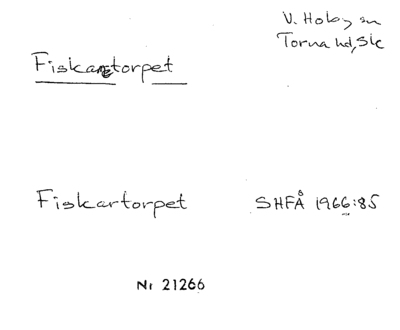 V. Hoby sn
Torna hd, Sk
Fiskaretorpet
Fiskartorpet SHFÅ 1966:85
Nr 21266